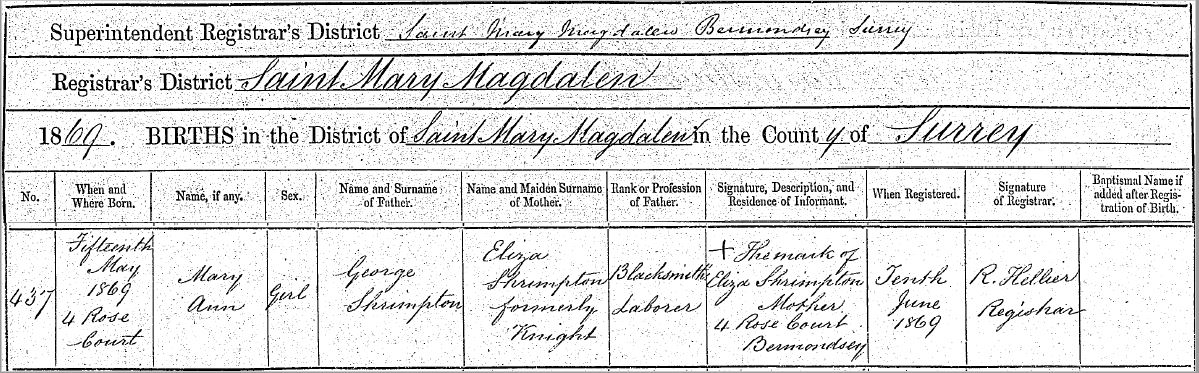 Superintendent Registrar's District Saint Mary Magdalen Bermondsey Surrey
Registrar's District Saint Mary Magdalen
1869. BIRTHS in the District of Saint Mary Magdalen in the County of Surrey
No.
When and
Where Born.
Name, if any.
Sex.
Name and Surname
of Father.
Name and Maiden Surname
of Mother.
Rank or Profession
of Father.
Signature, Description, and
Residence of Informant.
When Registered.
Signature
of Registrar.
Baptismal Name if
added after Regis-
tration of Birth.
437
Fifteenth
May
1869
4 Rose
Court
Mary
Ann
Girl
George
Shrimpton
Eliza
Shrimpton
formerly
Knight
Blacksmiths
Laborer
+ The mark of
Eliza Shrimpton
Mother
4 Rose Court
Bermondsey
Tenth
June
1869
R. Hellier
Registrar